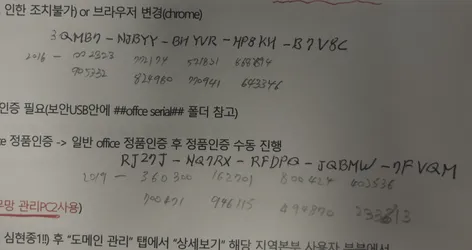 인한 조치불가) or 브라우저 변경(chrome)
3QMB7-NJBYY-BHYVR-HP8KH-B7V8C
2016 - 772174 521821
905332 824980 770941 643346
인증 필요(보안USB안에 ##offce serial## 폴더 참고)
정품인증 -> 일반 office 정품인증 후 정품인증 수동 진행
RJ27J-NQ7RX-RFDPQ-JQBMW-7FVQM
2019 - 360300 162701 800424 402536
700471 946115 494870 233813
망 관리PC2사용)
심현중1!!) 후 "도메인 관리" 탭에서 "상세보기" 해당 지역본부 사용자 부분에서